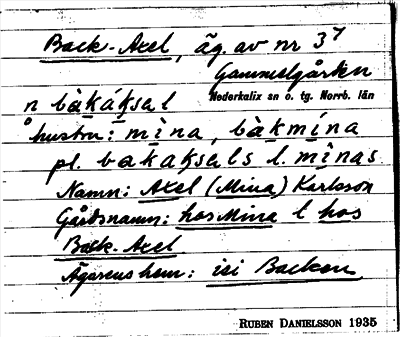 Back-Axel, äg. av nr 3⁷
Gammelgården
Nederkalix sn o. tg. Norrb. län
n bàkáksal
hustru: mìna, bàkmína
pl. bakaksals l. mìnas
Namn: Axel (Mina) Karlsson
Gårdsnamn: hos Mina l hos
Back-Axel
Ägarens hem: isi Backen
RUBEN DANIELSSON 1935